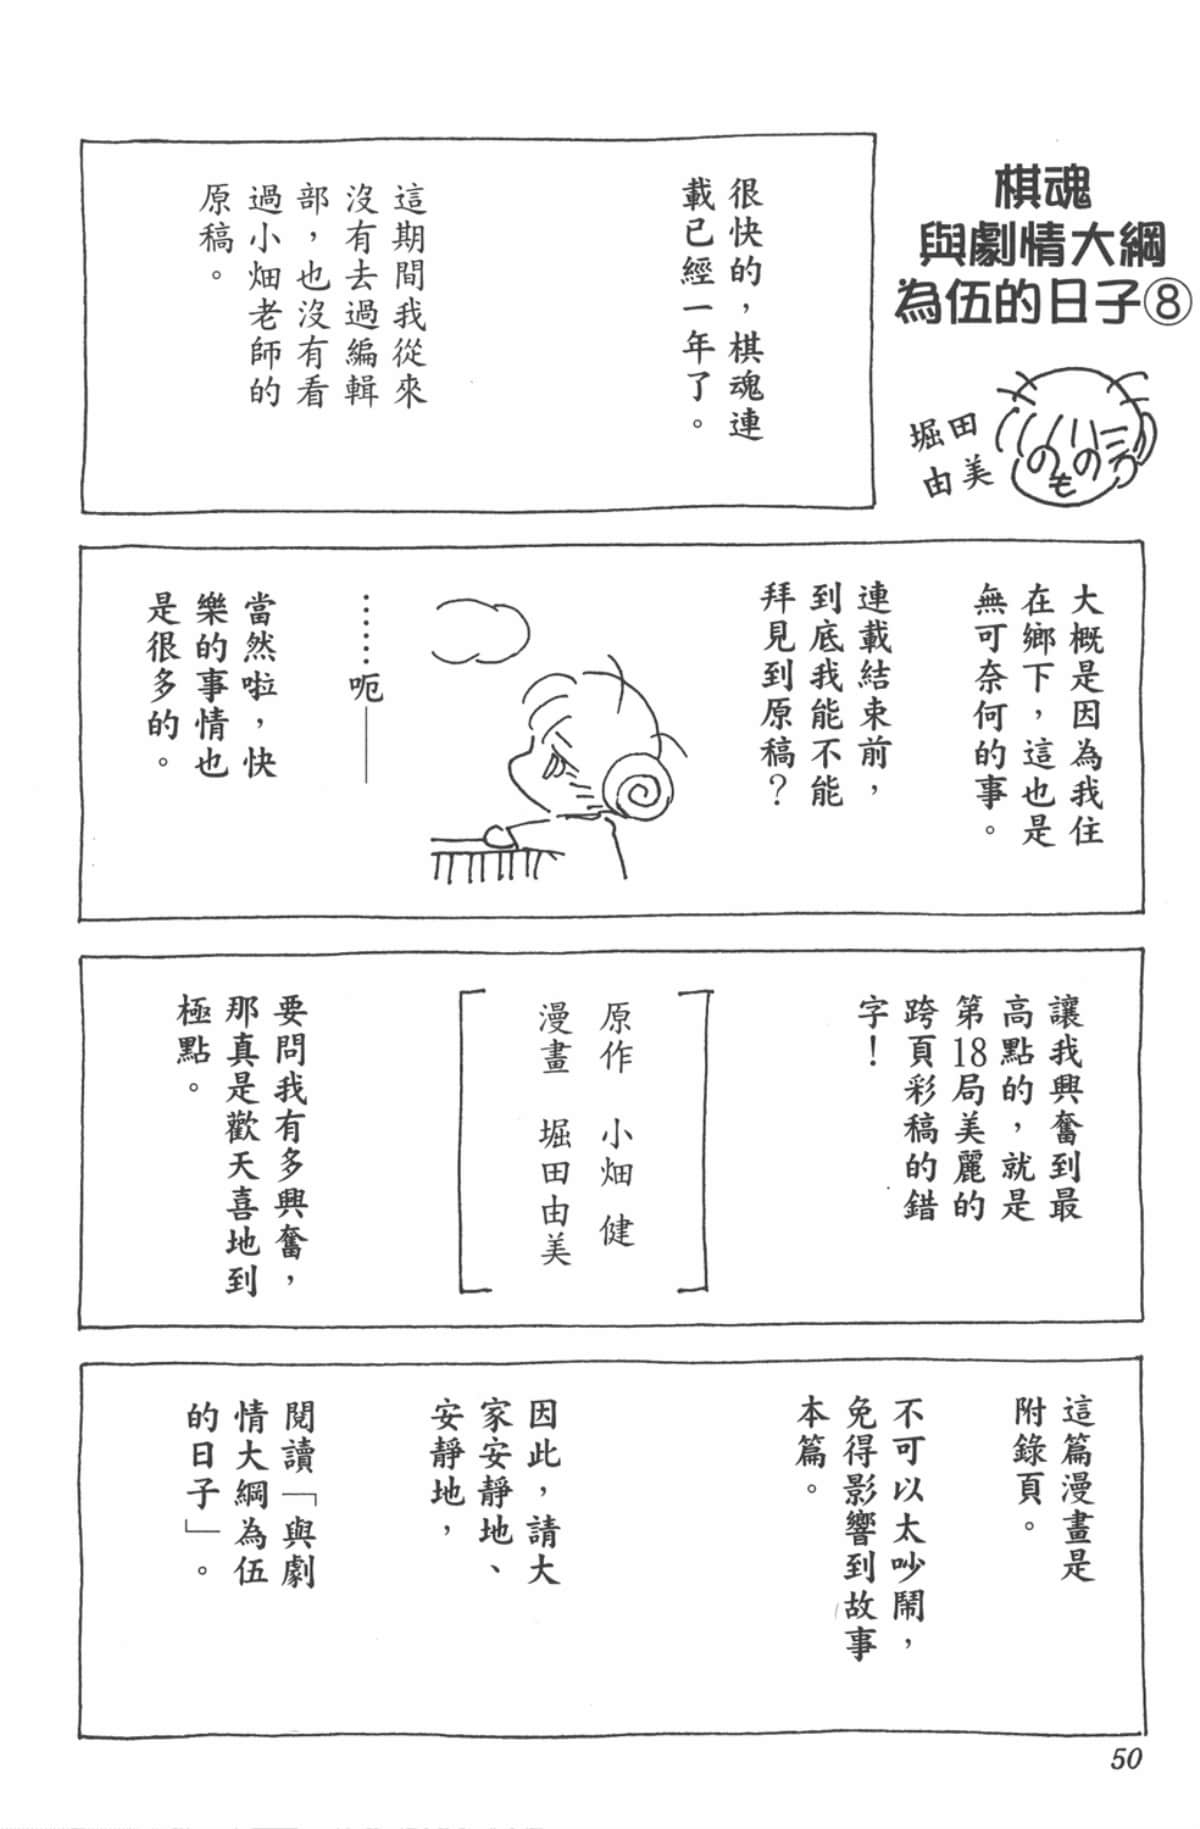 棋魂
與劇情大綱
為伍的日子⑧
堀田
由美
很快的，棋魂連
載已經一年了。
這期間我從來
沒有去過編輯
部，也沒有看
過小畑老師的
原稿。
大概是因為我住
在鄉下，這也是
無可奈何的事。
連載結束前，
到底我能不能
拜見到原稿？
⋯⋯呃——
當然啦，快
樂的事情也
是很多的。
讓我興奮到最
高點的，就是
第18局美麗的
跨頁彩稿的錯
字！
原作　小畑　健
漫畫　堀田由美
要問我有多興奮，
那真是歡天喜地到
極點。
這篇漫畫是
附錄頁。
不可以太吵鬧，
免得影響到故事
本篇。
因此，請大
家安靜地、
安靜地，
閱讀「與劇
情大綱為伍
的日子」。
50